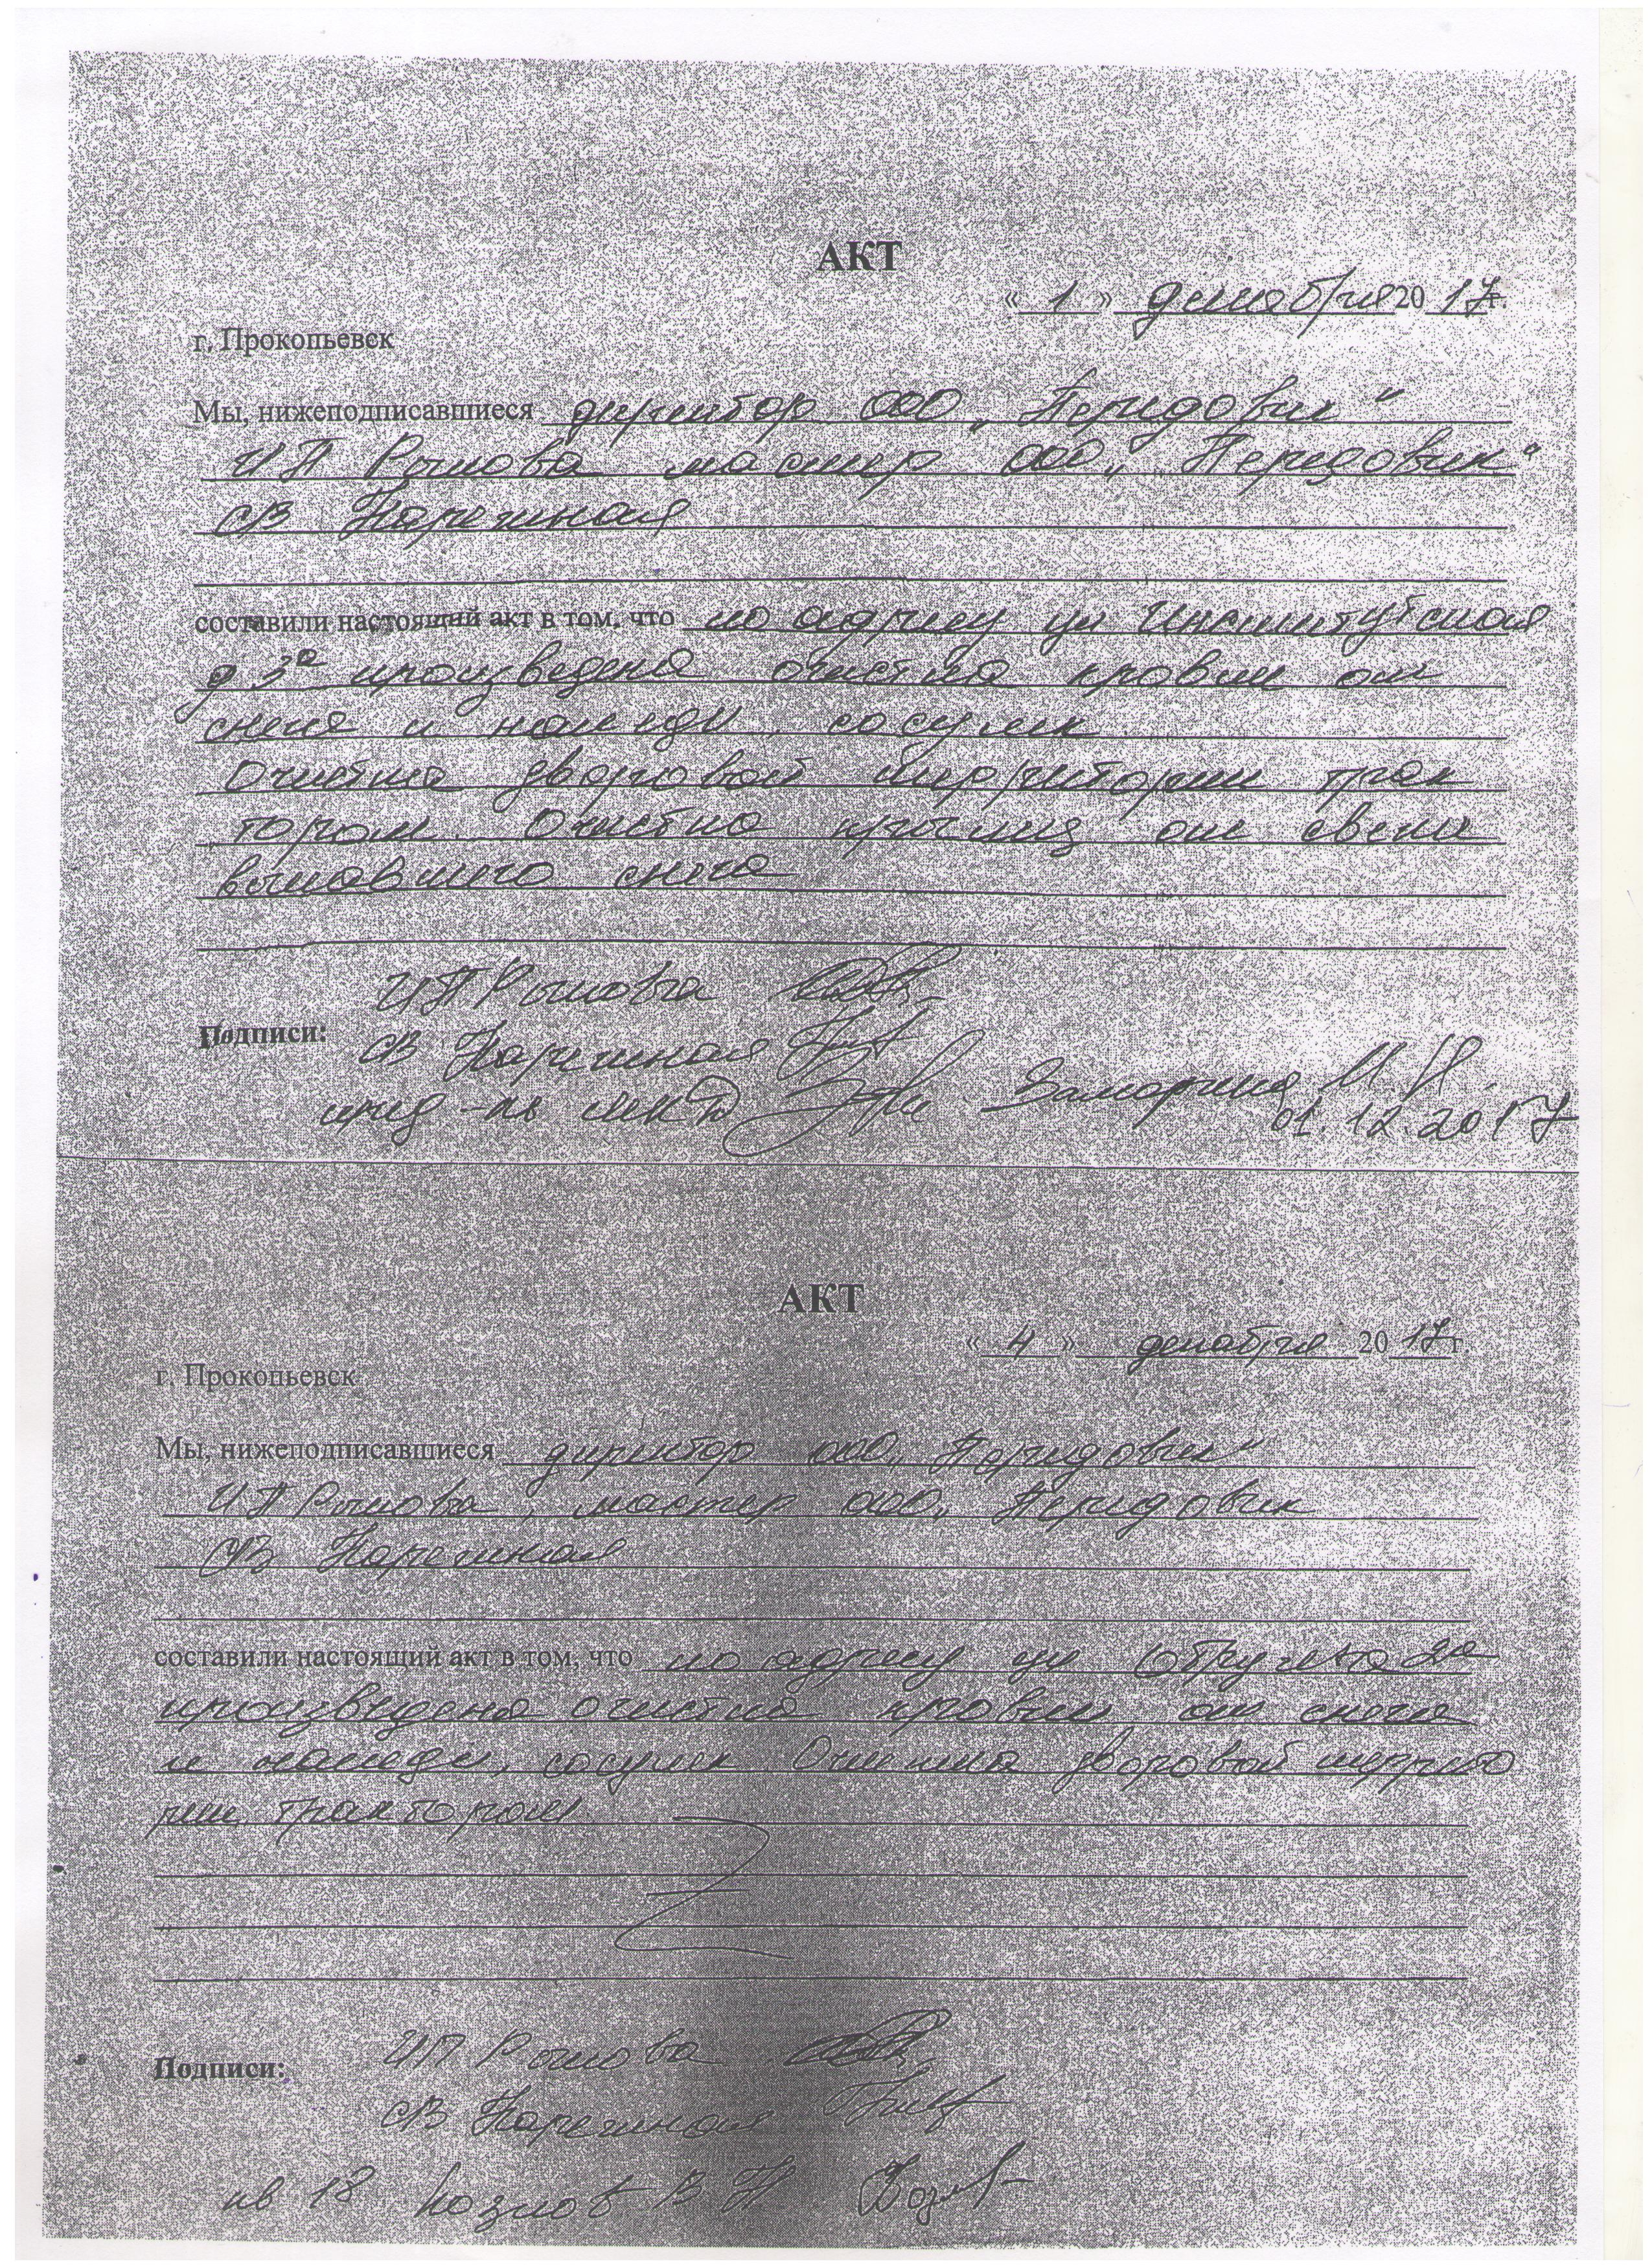 АКТ
« 1 » декабря 20 17 г.
г. Прокопьевск
Мы, нижеподписавшиеся директор ООО „Передовик"
ИП Рычкова мастер ООО „Передовик"
СВ
составили настоящий акт в том, что по адресу ул Институтская
д 3а произведена очистка кровли от
снега и наледи, сосулек.
Очистка дворовой территории трак
тором. Очистка крылец от свеже
выпавшего снега
ИП Рычкова
Подписи:
СВ
пред-ль МКД И.Н.
01.12.2017
АКТ
« 4 » декабря 20 17 г.
г. Прокопьевск
Мы, нижеподписавшиеся директор ООО „Передовик"
ИП Рычкова, мастер ООО „Передовик
СВ
составили настоящий акт в том, что по адресу ул Обручева 2а
произведена очистка кровли от снега
и наледи, сосулек Очистка дворовой террито
рии трактором
ИП Рычкова
Подписи:
СВ
кв 18 Козлов В Н